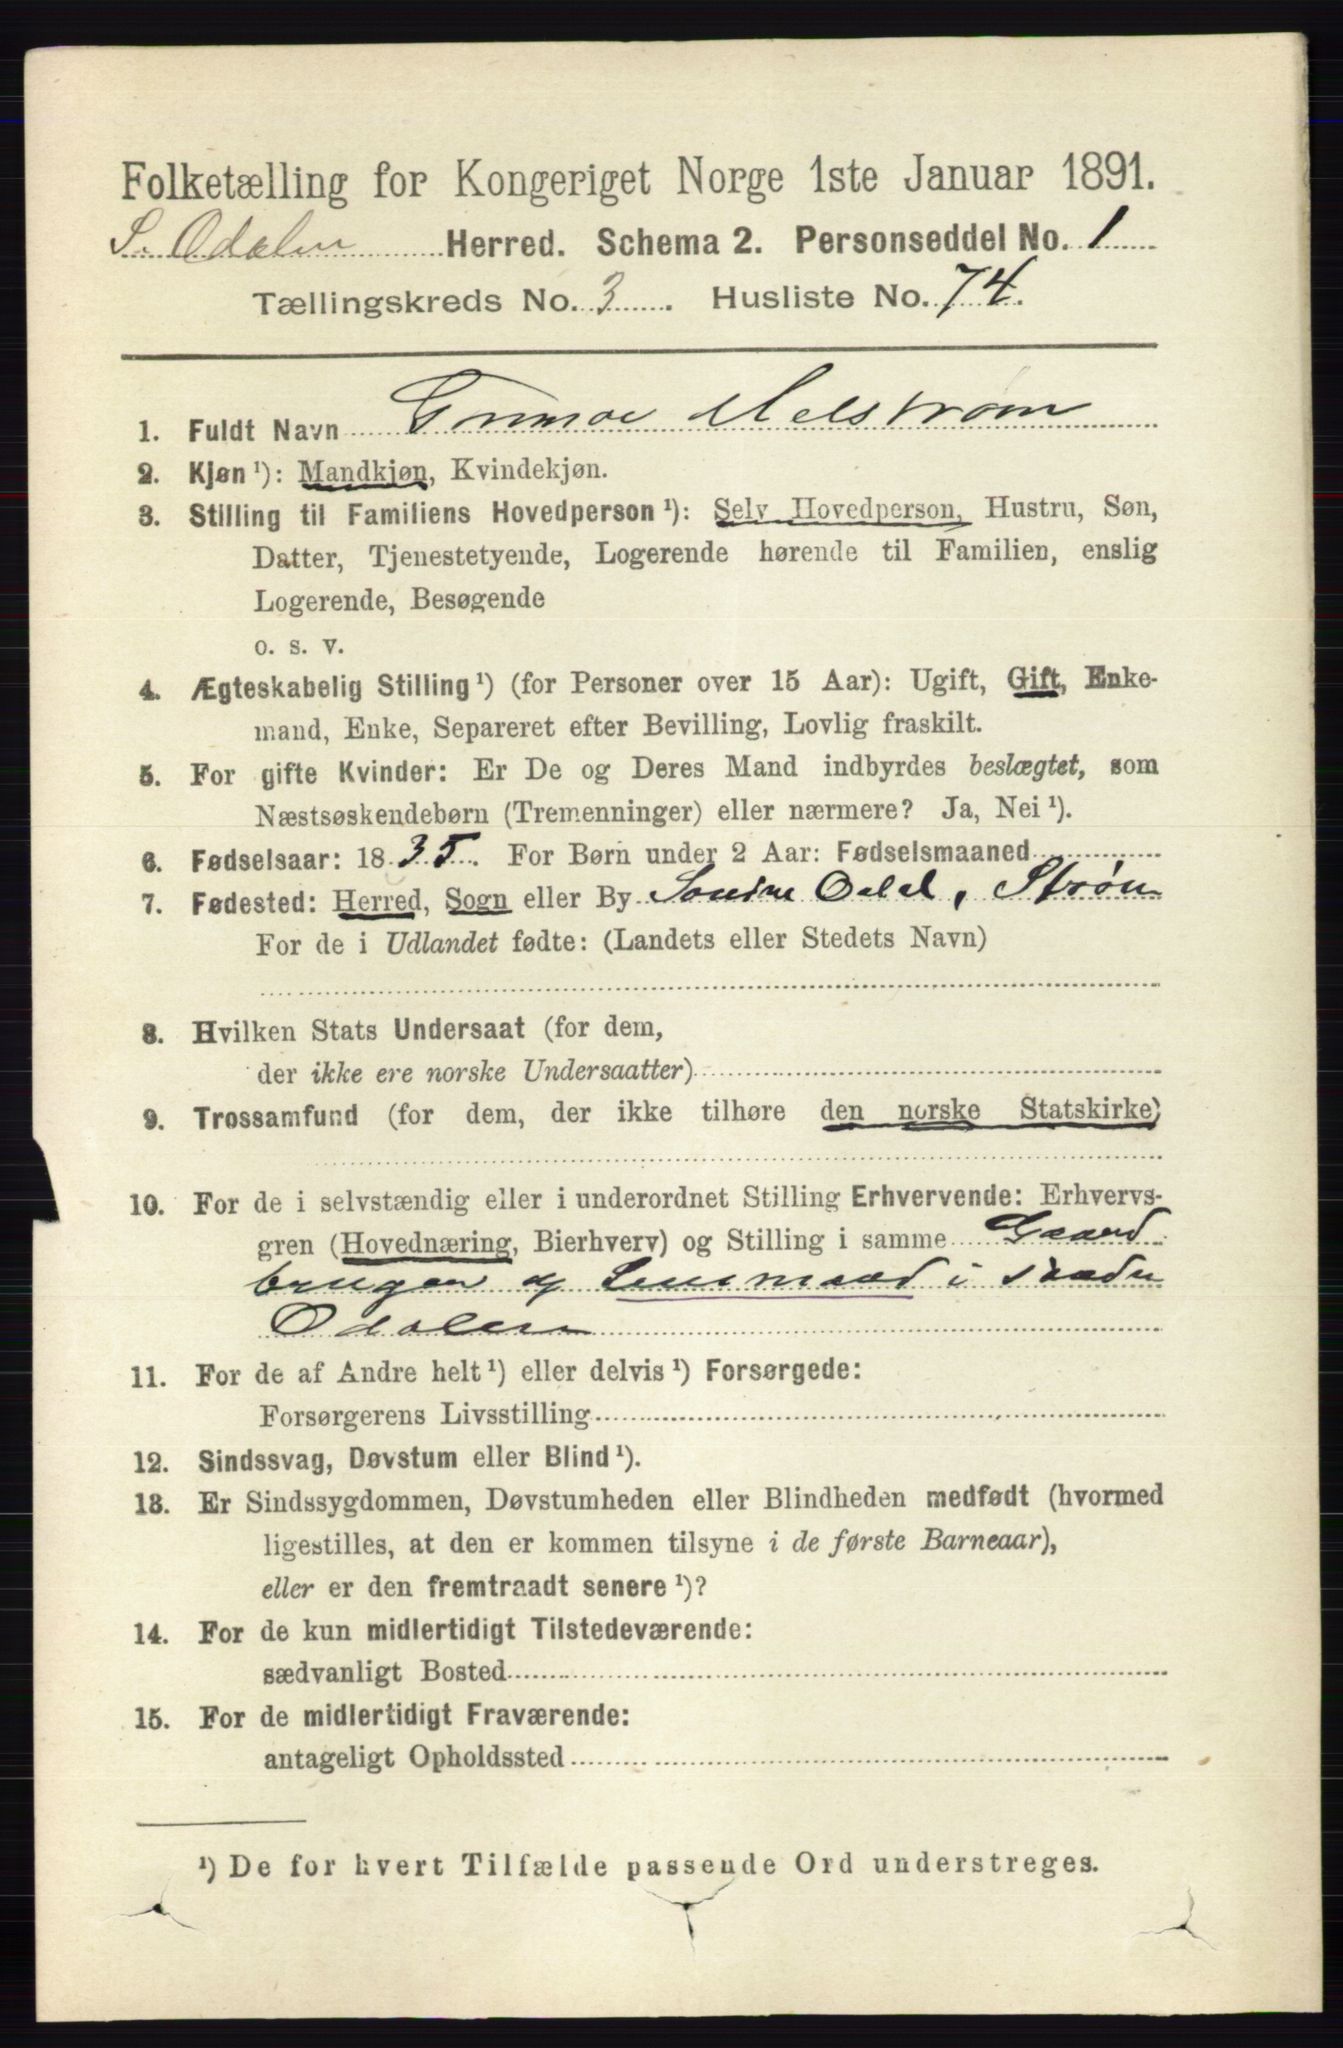 Folketælling for Kongeriget Norge 1ste Januar 1891.
S. Odalen Herred. Schema 2. Personseddel No. 1
Tællingskreds No. 3. Husliste No. 74.
1. Fuldt Navn Melstrøm
2. Kjøn ¹): Mandkjøn, Kvindekjøn.
3. Stilling til Familiens Hovedperson ¹): Selv Hovedperson, Hustru, Søn,
Datter, Tjenestetyende, Logerende hørende til Familien, enslig
Logerende, Besøgende
o. s. v.
4. Ægteskabelig Stilling ¹) (for Personer over 15 Aar): Ugift, Gift, Enke-
mand, Enke, Separeret efter Bevilling, Lovlig fraskilt.
5. For gifte Kvinder: Er De og Deres Mand indbyrdes beslægtet, som
Næstsøskendebørn (Tremenninger) eller nærmere? Ja, Nei ¹).
6. Fødselsaar: 1835. For Børn under 2 Aar: Fødselsmaaned
7. Fødested: Herred, Sogn eller By Søndre Odal, Strøm
For de i Udlandet fødte: (Landets eller Stedets Navn)
8. Hvilken Stats Undersaat (for dem,
der ikke ere norske Undersaatter)
9. Trossamfund (for dem, der ikke tilhøre den norske Statskirke)
10. For de i selvstændig eller i underordnet Stilling Erhvervende: Erhvervs-
gren (Hovednæring, Bierhverv) og Stilling i samme Gaard
bruger og Lensmand i Søndre
Odalen
11. For de af Andre helt ¹) eller delvis ¹) Forsørgede:
Forsørgerens Livsstilling
12. Sindssvag, Døvstum eller Blind ¹).
13. Er Sindssygdommen, Døvstumheden eller Blindheden medfødt (hvormed
ligestilles, at den er kommen tilsyne i de første Barneaar),
eller er den fremtraadt senere ¹)?
14. For de kun midlertidigt Tilstedeværende:
sædvanligt Bosted
15. For de midlertidigt Fraværende:
antageligt Opholdssted
¹) De for hvert Tilfælde passende Ord understreges.